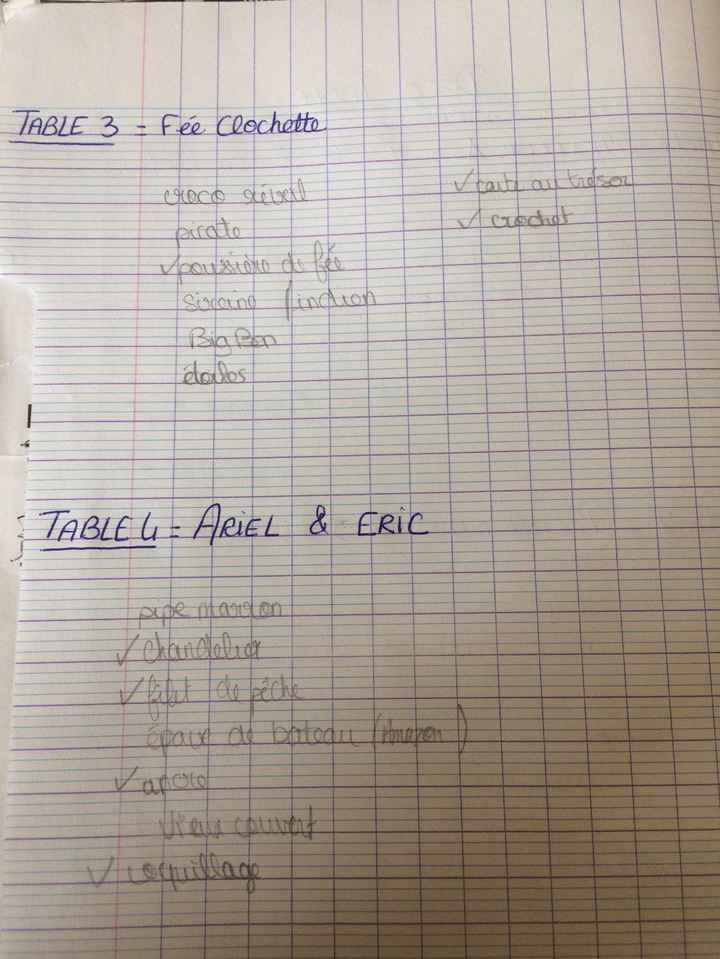 TABLE 3 = Fée Clochette
croco réveil
pirate
✓ poussière de fée
sirène / indien
Big Ben
étoiles
✓ carte au trésor
✓ crochet
TABLE 4 = ARIEL & ERIC
pipe
✓ chandelier
✓ filet de pêche
épave de bateau (Amazon)
✓ ancre
vieux couvert
✓ coquillage